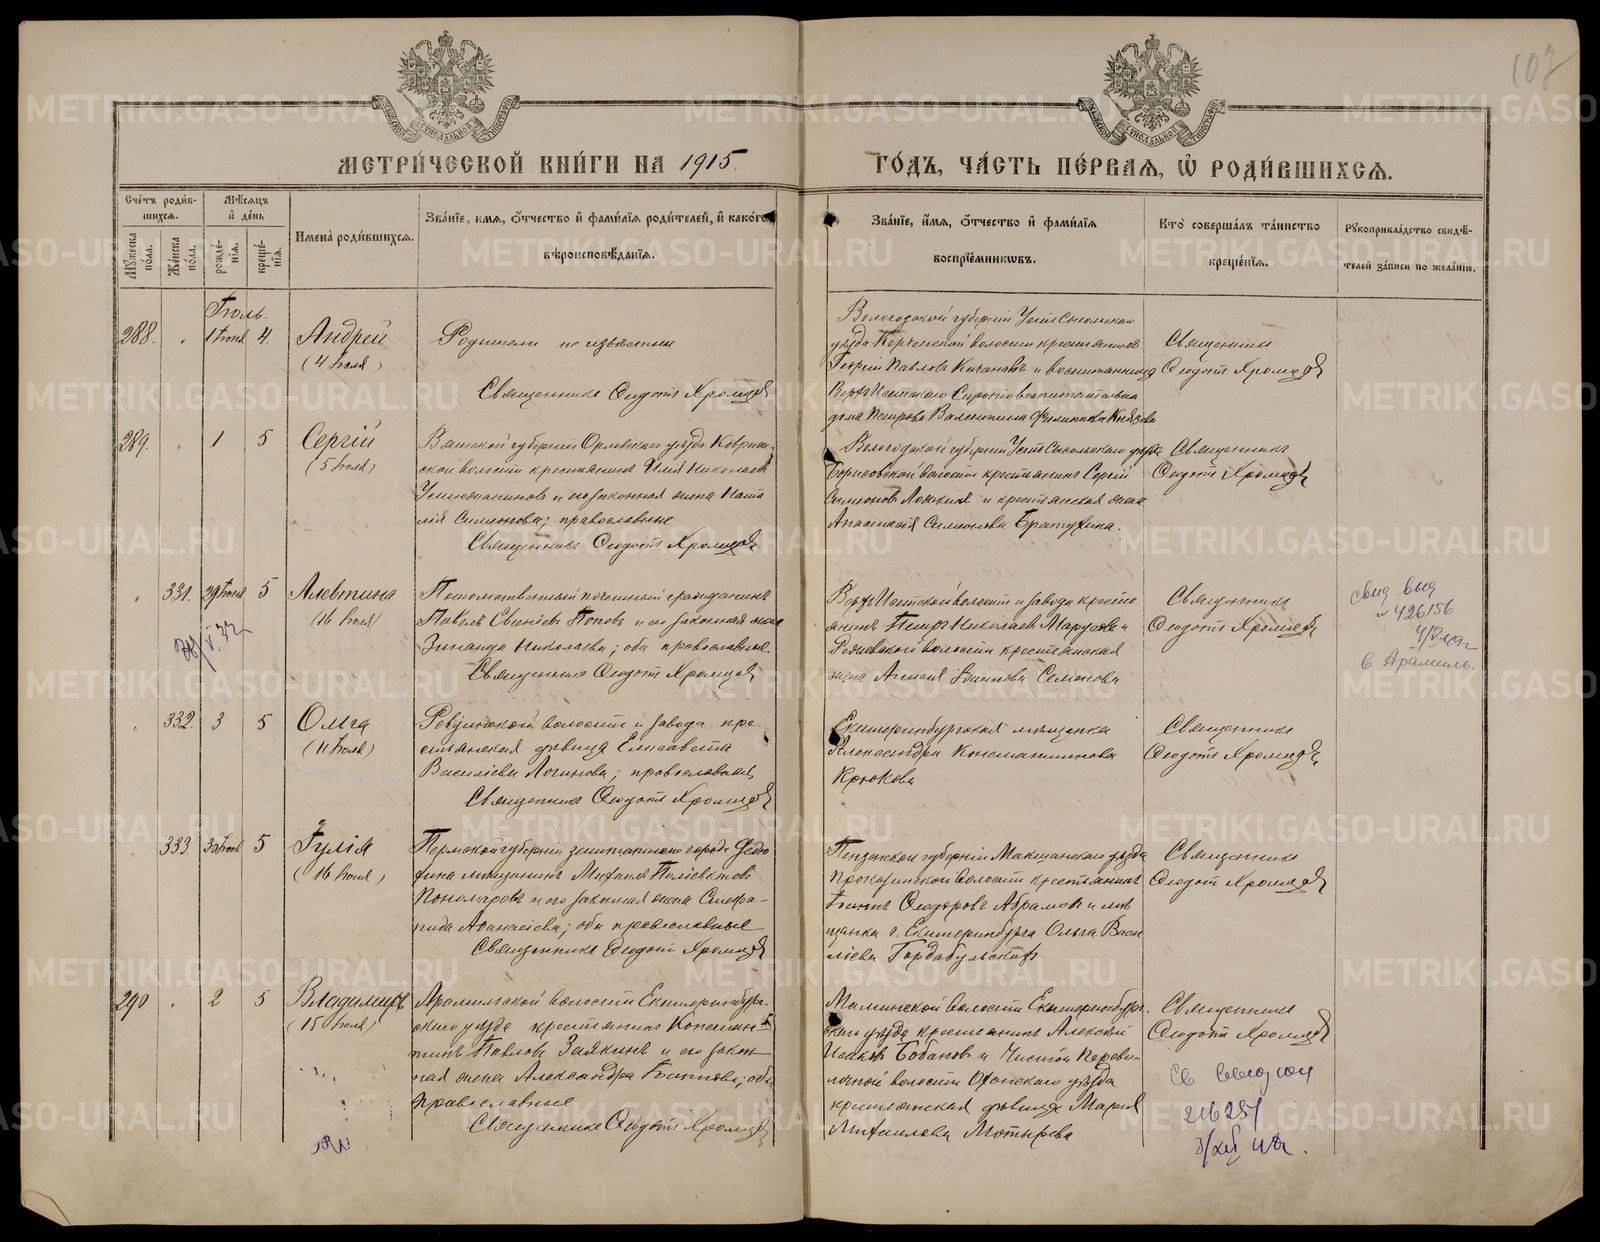 107
МЕТРИ́ЧЕСКОЙ КНИ́ГИ НА 1915.
ГО́ДЪ, ЧА́СТЬ ПЕ́РВАЯ, Ѽ РОДИ́ВШИХСЯ.
Сче́тъ роди́вшихся.
Мѣ́сяцъ и҆ де́нь
Мꙋ́жеска по́ла.
Же́нска по́ла.
рожде́нїя.
креще́нїя.
И҆мена̀ роди́вшихся.
Зва́нїе, и҆́мя, ѻ҆́тчество и҆ фами́лїя роди́телей, и҆ како́гѡ
вѣроисповѣ́данїя.
Зва́нїе, и҆́мя, ѻ҆́тчество и҆ фами́лїя
воспрїе́мникѡвъ.
Кто̀ соверша́лъ та́инство
креще́нїя.
Рꙋкоприкла́дство свидѣ́телей за́писи по жела́нїю.
Іюль.
288.
1 Іюля
4.
Андрей
(4 Іюля)
Родители не извѣстны
Священникъ Ѳеодотъ Хромцовъ
Вологодской губерніи Усть Сысольскаго
уѣзда Корчемской волости крестьянинъ
Георгій Павловъ и воспитанница
Верхъ Исетскаго Сиротовоспитательнаго
дома Петрова Валентина Филиппова Князева.
Священникъ
Ѳеодотъ Хромцовъ
289.
1
5
Сергій
(5 Іюля)
Вятской губерніи Орловскаго уѣзда
ской волости крестьянинъ Илія Николаевъ
и его законная жена Ната
лія Симеонова; православные
Священникъ Ѳеодотъ Хромцовъ
Вологодской губерніи Усть Сысольскаго уѣзда
Борисовской волости крестьянинъ Сергій
Симеоновъ и крестьянская жена
Анастасія Симеонова Братухина.
Священникъ
Ѳеодотъ Хромцовъ
331.
29 Іюня
5
Алевтина
(16 Іюля)
Потомственный почетный гражданинъ
Павелъ Евгеніевъ Поповъ и его законная жена
Зинаида Николаева; оба православные.
Священникъ Ѳеодотъ Хромцовъ
Верхъ Исетской волости и завода кресть
янинъ Петръ Николаевъ и
волости крестьянская
жена Агнія Іоаннова Семенова
Священникъ
Ѳеодотъ Хромцовъ
свид выд
№ 426156
в Арамиль.
332.
3
5
Ольга
(11 Іюля)
Ревдинской волости и завода кре
стьянская дѣвица Елисавета
Василіева Логинова; православная
Священникъ Ѳеодотъ Хромцовъ
Екатеринбургская мѣщанка
Александра Константинова
Крюкова
Священникъ
Ѳеодотъ Хромцовъ
333.
30 Іюня
5
Іулія
(16 Іюля)
Пермской губерніи заштатнаго города Дедю
хина мѣщанинъ Михаилъ Поліевктовъ
Пономаревъ и его законная жена Стефа-
нида Аѳанасіева; оба православные
Священникъ Ѳеодотъ Хромцовъ
Пензенской губерніи Мокшанскаго уѣзда
Проказинской волости крестьянинъ
Іоаннъ Ѳеодоровъ Абрамовъ и мѣ
щанка г. Екатеринбурга Ольга Васи
ліева
Священникъ
Ѳеодотъ Хромцовъ
290
2
5
Владимиръ
(15 Іюля)
Арамильской волости Екатеринбург-
скаго уѣзда крестьянинъ Констан-
тинъ Павловъ Заякинъ и его закон
ная жена Александра Іоаннова; оба
православные
Священникъ Ѳеодотъ Хромцовъ
Маминской волости Екатеринбург-
скаго уѣзда крестьянинъ Алексѣй
Исаковъ Бобановъ и Чисто Перево
лочной волости Оханскаго уѣзда
крестьянская дѣвица Марія
Михаилова Мотырева
Священникъ
Ѳеодотъ Хромцовъ
216251
METRIKI.GASO-URAL.RU